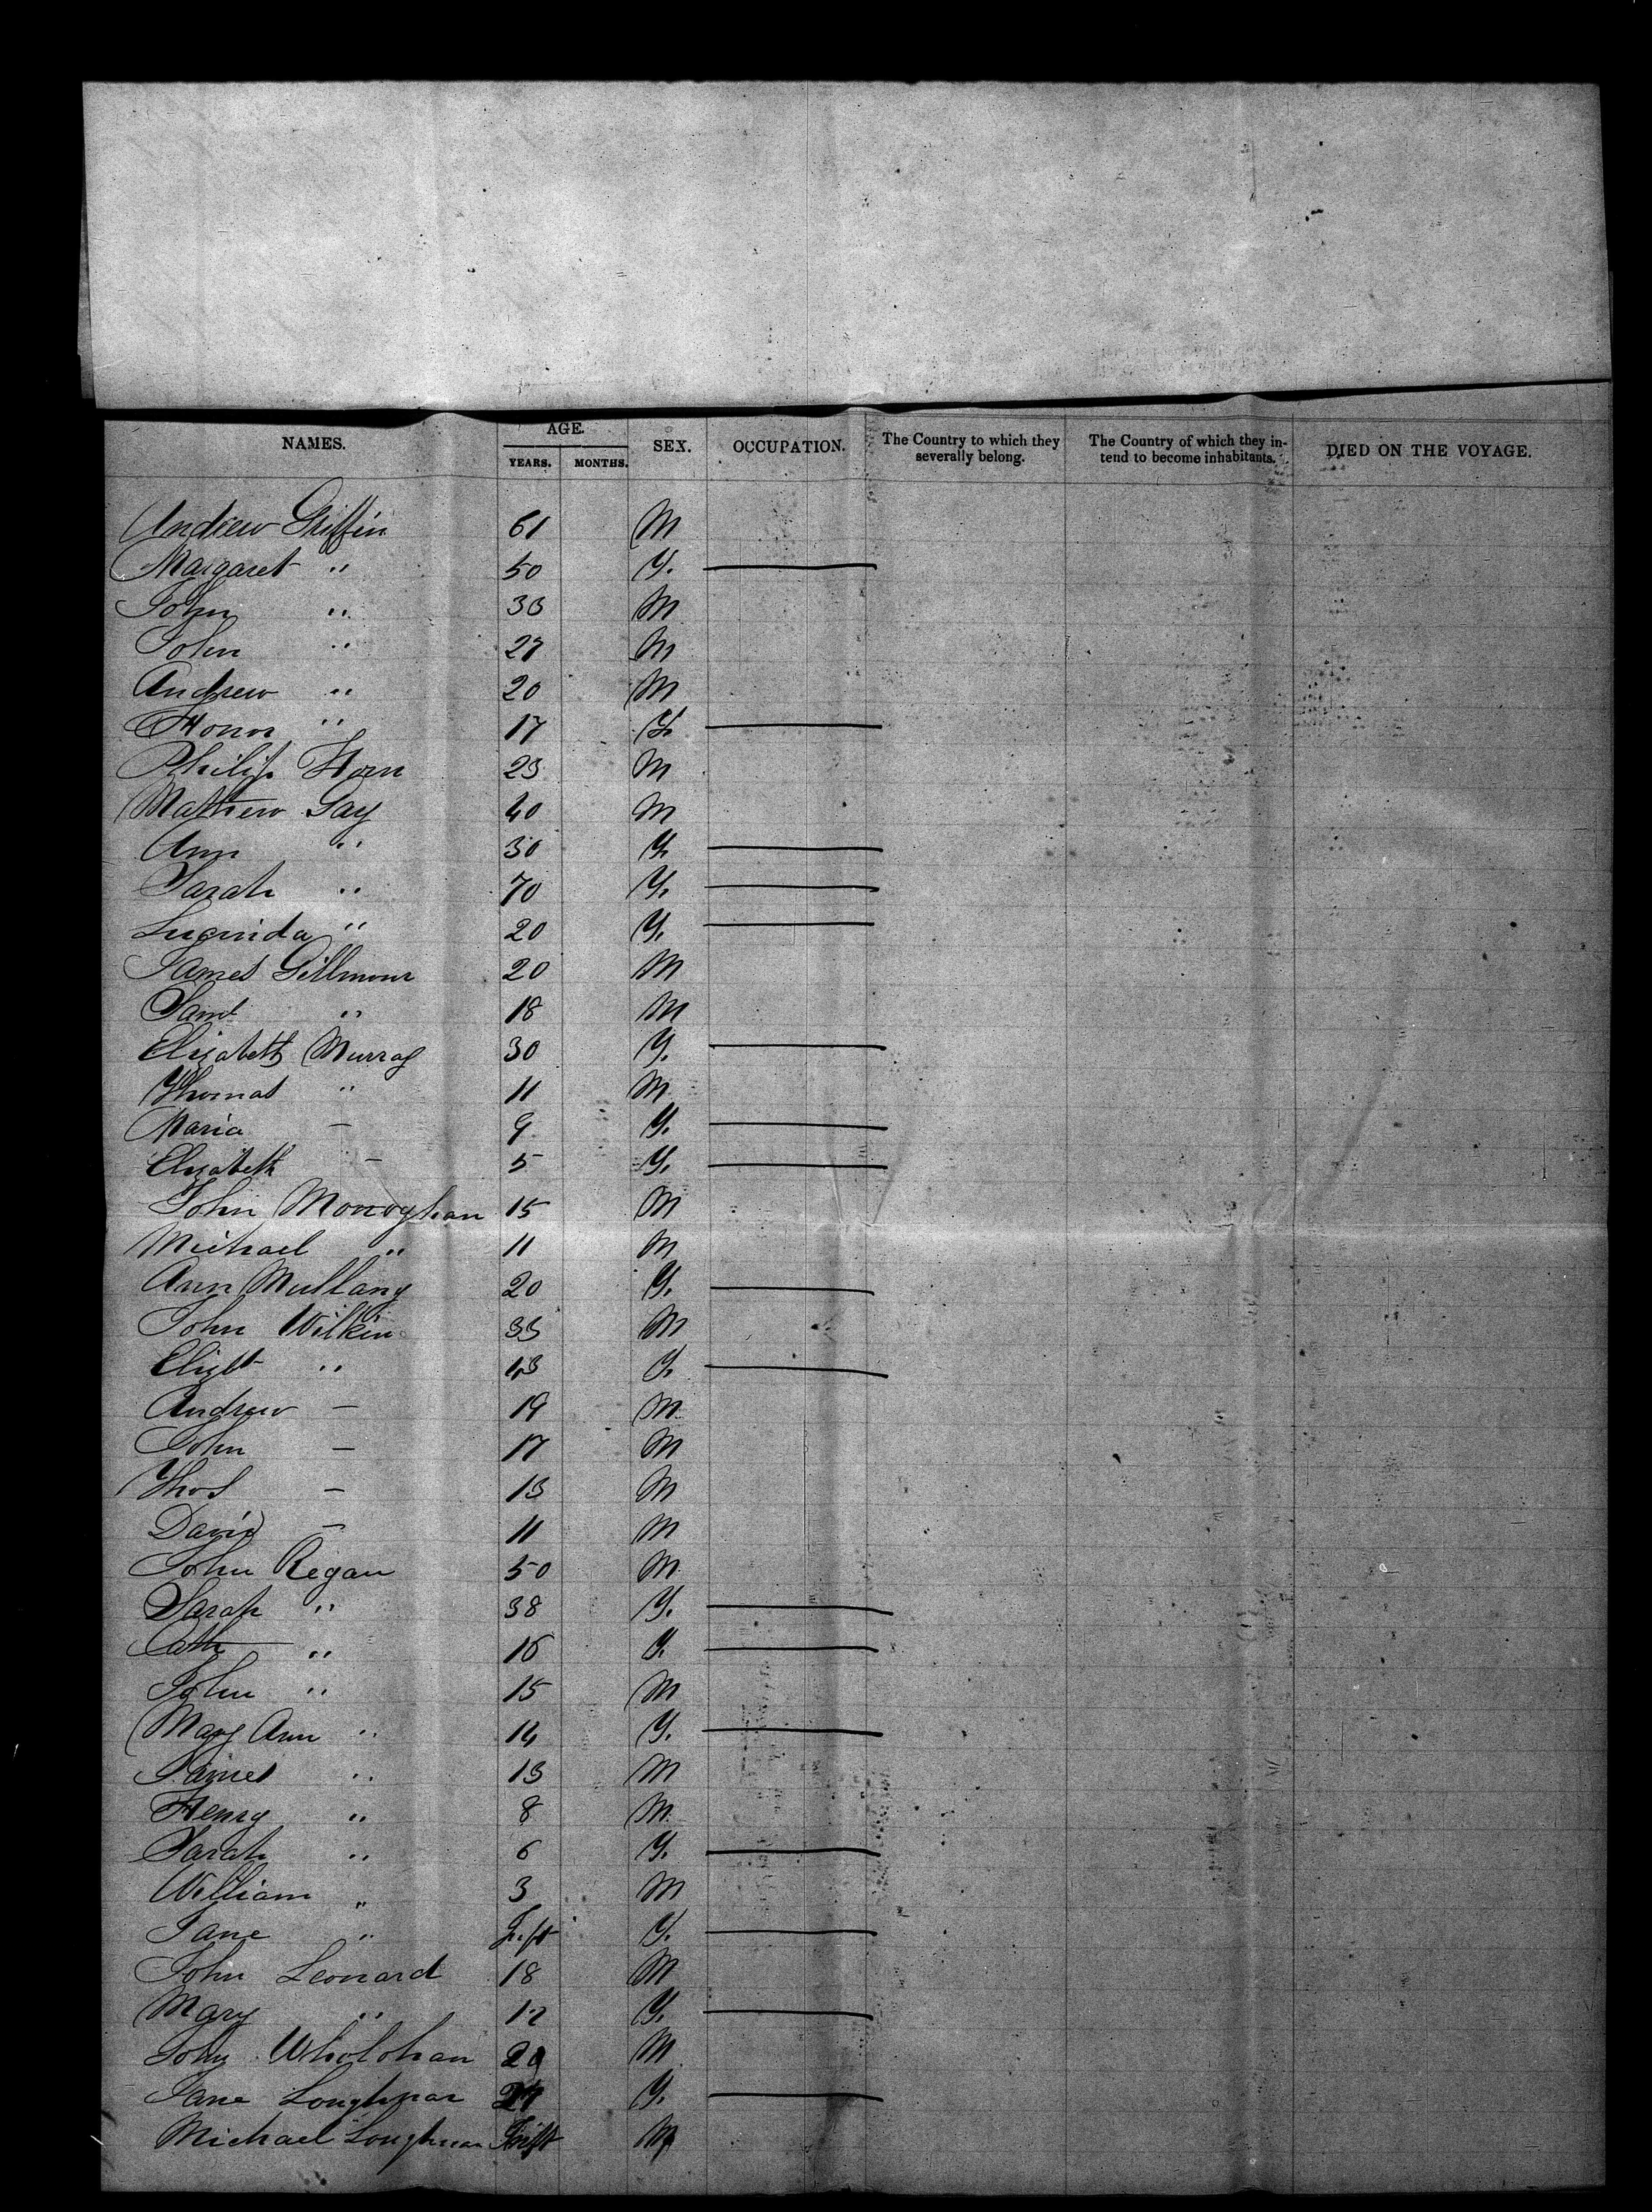 NAMES. AGE. YEARS. MONTHS. SEX. OCCUPATION. The Country to which they severally belong. The Country of which they intend to become inhabitants. DIED ON THE VOYAGE.
Andrew Griffin 61 M
Margaret " 50 F. —
John " 33 M
John " 27 M
Andrew " 20 M
Honor " 17 F. —
Philip Horn 23 M
Mathew Gay 40 M
Ann " 30 F. —
Sarah " 70 F. —
Lucinda " 20 F. —
James Gillmour 20 M
Saml " 18 M
Elizabeth Murray 30 F. —
Thomas " 11 M
Maria — 9 F. —
Elizabeth — 5 F. —
John Monoghan 15 M
Michael " 11 M
Ann Mullany 20 F. —
John Wilkin 33 M
Elizbt " 13 F. —
Andrew — 19 M
John — 17 M
Thos — 13 M
David — 11 M
John Regan 50 M
Sarah " 38 F. —
Cath " 16 F. —
John " 15 M
Mary Ann " 14 F. —
James " 13 M
Henry " 8 M
Sarah " 6 F. —
William " 3 M
Jane " Inft F. —
John Leonard 18 M
Mary " 12 F. —
John Wholohan 20 M
Jane Loughnan F. —
Michael Loughnan Inft M